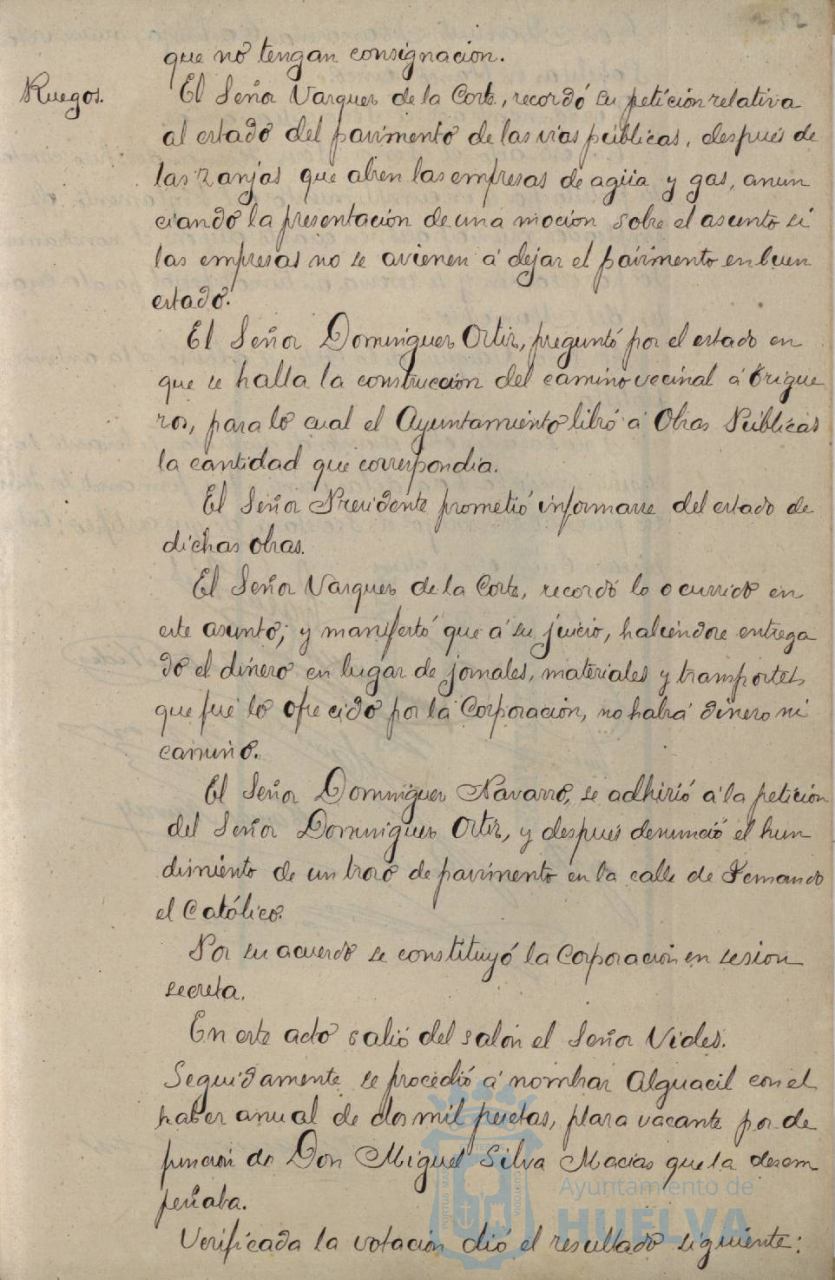 252
que no tengan consignacion.
Ruegos.
El Señor Vazquez de la Corte, recordó su petición relativa
al estado del pavimento de las vias públicas, después de
las zanjas que abren las empresas de agüa y gas, anun
ciando la presentación de una moción sobre el asunto si
las empresas no se avienen á dejar el pavimento en buen
estado.
El Señor Dominguez Ortiz, preguntó por el estado en
que se halla la construcción del camino vecinal á Trigue
ros, para lo cual el Ayuntamiento libró á Obras Públicas
la cantidad que correspondia.
El Señor Presidente prometió informarse del estado de
dichas obras.
El Señor Vazquez de la Corte, recordó lo ocurrido en
este asunto; y manifestó que á su juicio, habiéndose entrega
do el dinero en lugar de jornales, materiales y transportes,
que fué lo ofrecido por la Corporación, no habrá dinero ni
camino.
El Señor Dominguez Navarro, se adhirió á la petición
del Señor Dominguez Ortiz, y después denunció el hun
dimiento de un trozo de pavimento en la calle de Fernando
el Católico.
Por su acuerdo se constituyó la Corporación en sesion
secreta.
En este acto salió del salón el Señor Vides.
Seguidamente se procedió á nombrar Alguacil con el
haber anual de dos mil pesetas, plaza vacante por de
función de Don Miguel Silva Macias que la desem
peñaba.
Verificada la votación dió el resultado siguiente:
Ayuntamiento de
HUELVA